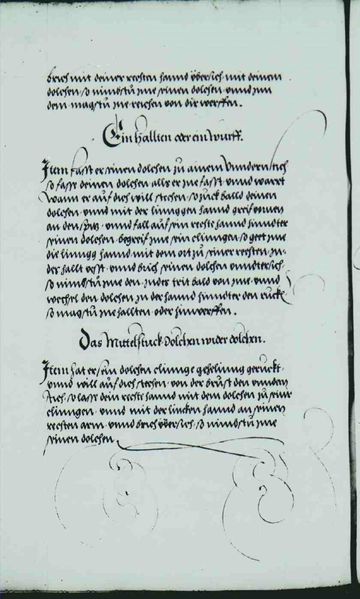 brich mit deiner rechten hannd vbersich mit deinem
dolchen so nimstu jme seinen dolchen vnnd jnn
dem magstu jne reichen von dir werffen.
Ein hallten oder ein wurff.
Item fasst er seinen dolchen zu ainem vnndern stich
so fasse deinen dolchen alls er jne fasst vnnd wart
wann er auf dich will stechen so zuck bald deinen
dolchen vnnd mit der linnggen hannd greif vornen
an den spitz vnnd fall auf sein rechte hannd hinnder
seinen dolchen begreif jme sein clingen so geet jme
die lingg hannd mit dem ort zu seiner rechten in
der hallt vesst vnnd brich seinen dolchen vnndersich
so nimstu jme den oder trit bald von jme vnnd
wechsel den dolchen zu der hannd hinnder den ruck
so magstu jne hallten oder hinwerffen.
Das Mittelstuck dolchen wider dolchen.
Item hat er sein dolchen clinge gehling geruckt
vnnd will auf dich stossen von der brust den vnndern
stich so lass dein recht hannd mit dem dolchen zu seiner
clingen vnnd mit der lincken hannd an seinen
rechten arm vnnd brich vbersich so nimbstu jme
seinen dolchen